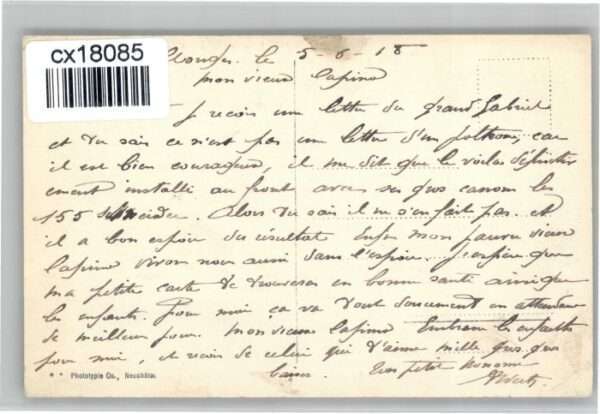 cx18085
le 5-6-18
mon vieux Lapino
Je recois une lettre du grand Gabriel
et tu sais ce n'est pas une lettre d'un poltron, car
il est bien courageux, il me dit que le voila définitiv
ement installé au front avec ses gros canons les
155 . Alors tu sais il ne s'en fait pas et
il a bon espoir du résultat Enfin mon pauvre vieux
Lapino vivons nous aussi dans l'espoir. J'espère que
ma petite carte te trouvera en bonne santé ainsi que
les enfants. Pour moi ça va tout doucement en attendant
de meilleurs jours. Mon vieux Lapino Embrasse les enfants
pour moi, et recois de celui qui t'aime mille gros gros
baisers Ton petit
* * Phototypie Co., Neuchâtel.